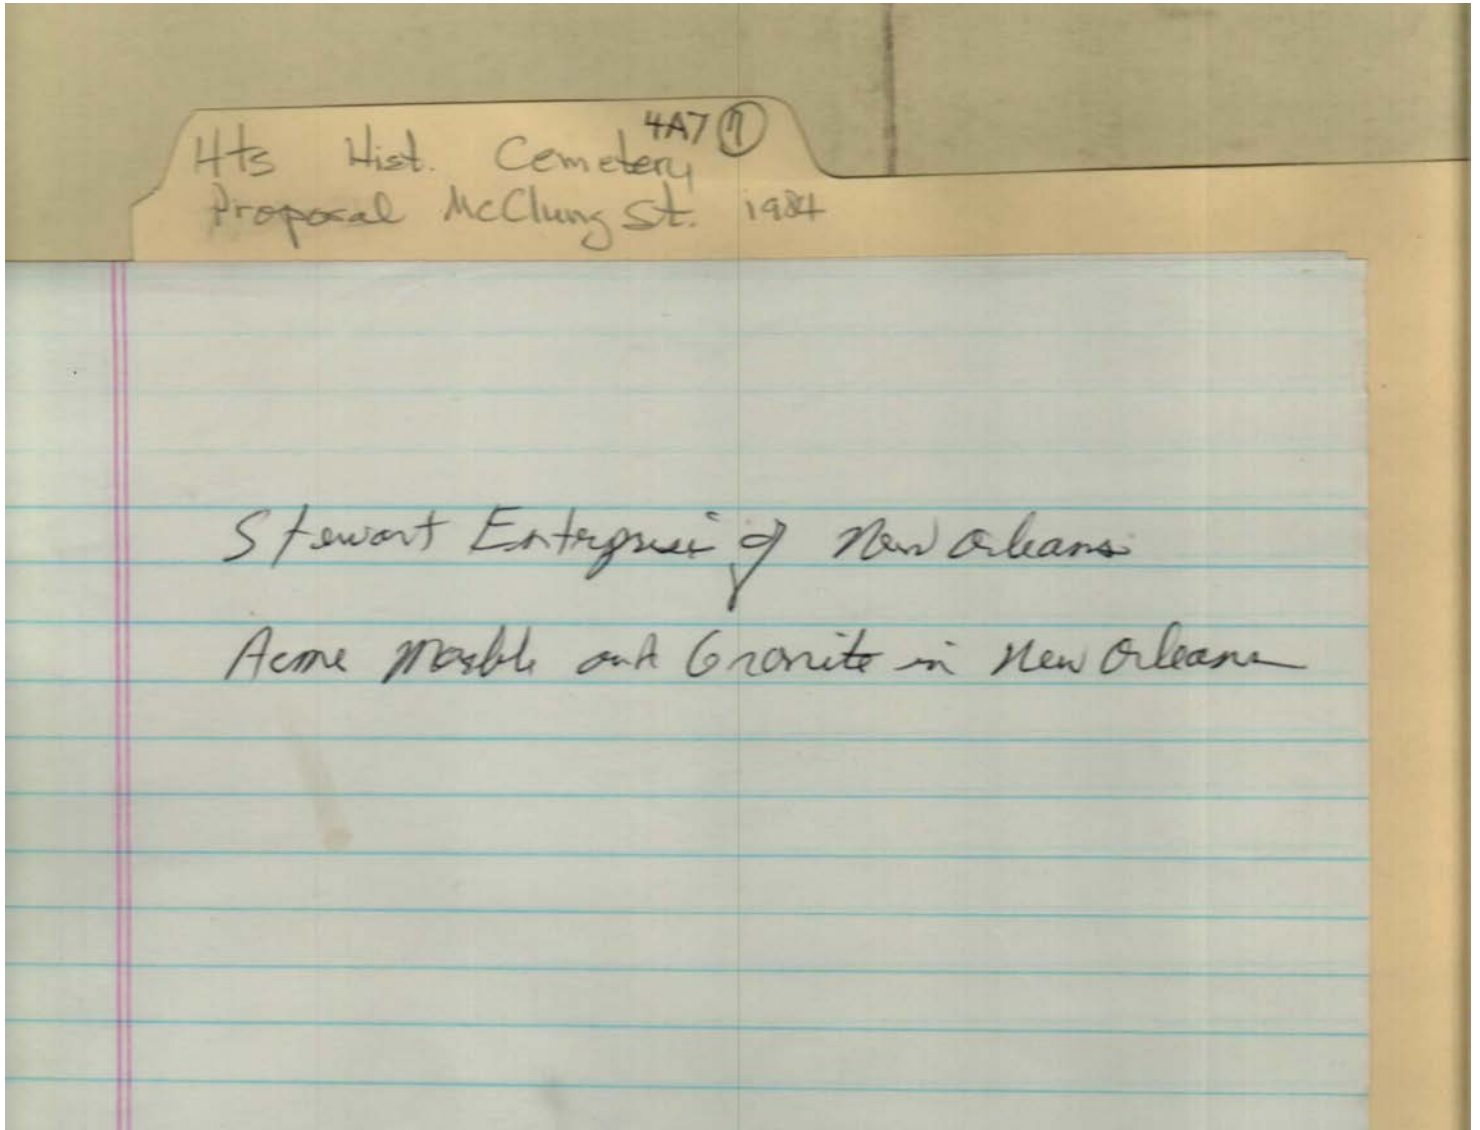 4A7 7
Hts Hist. Cemetery
Proposal McClung St. 1984
Stewart Enterprise of New Orleans
Acme Marble and Granite in New Orleans